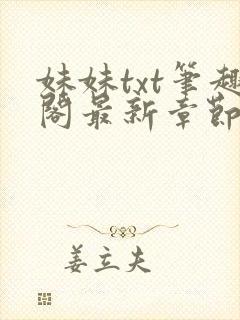 妹妹txt筆趣
閣最新章節
姜立夫